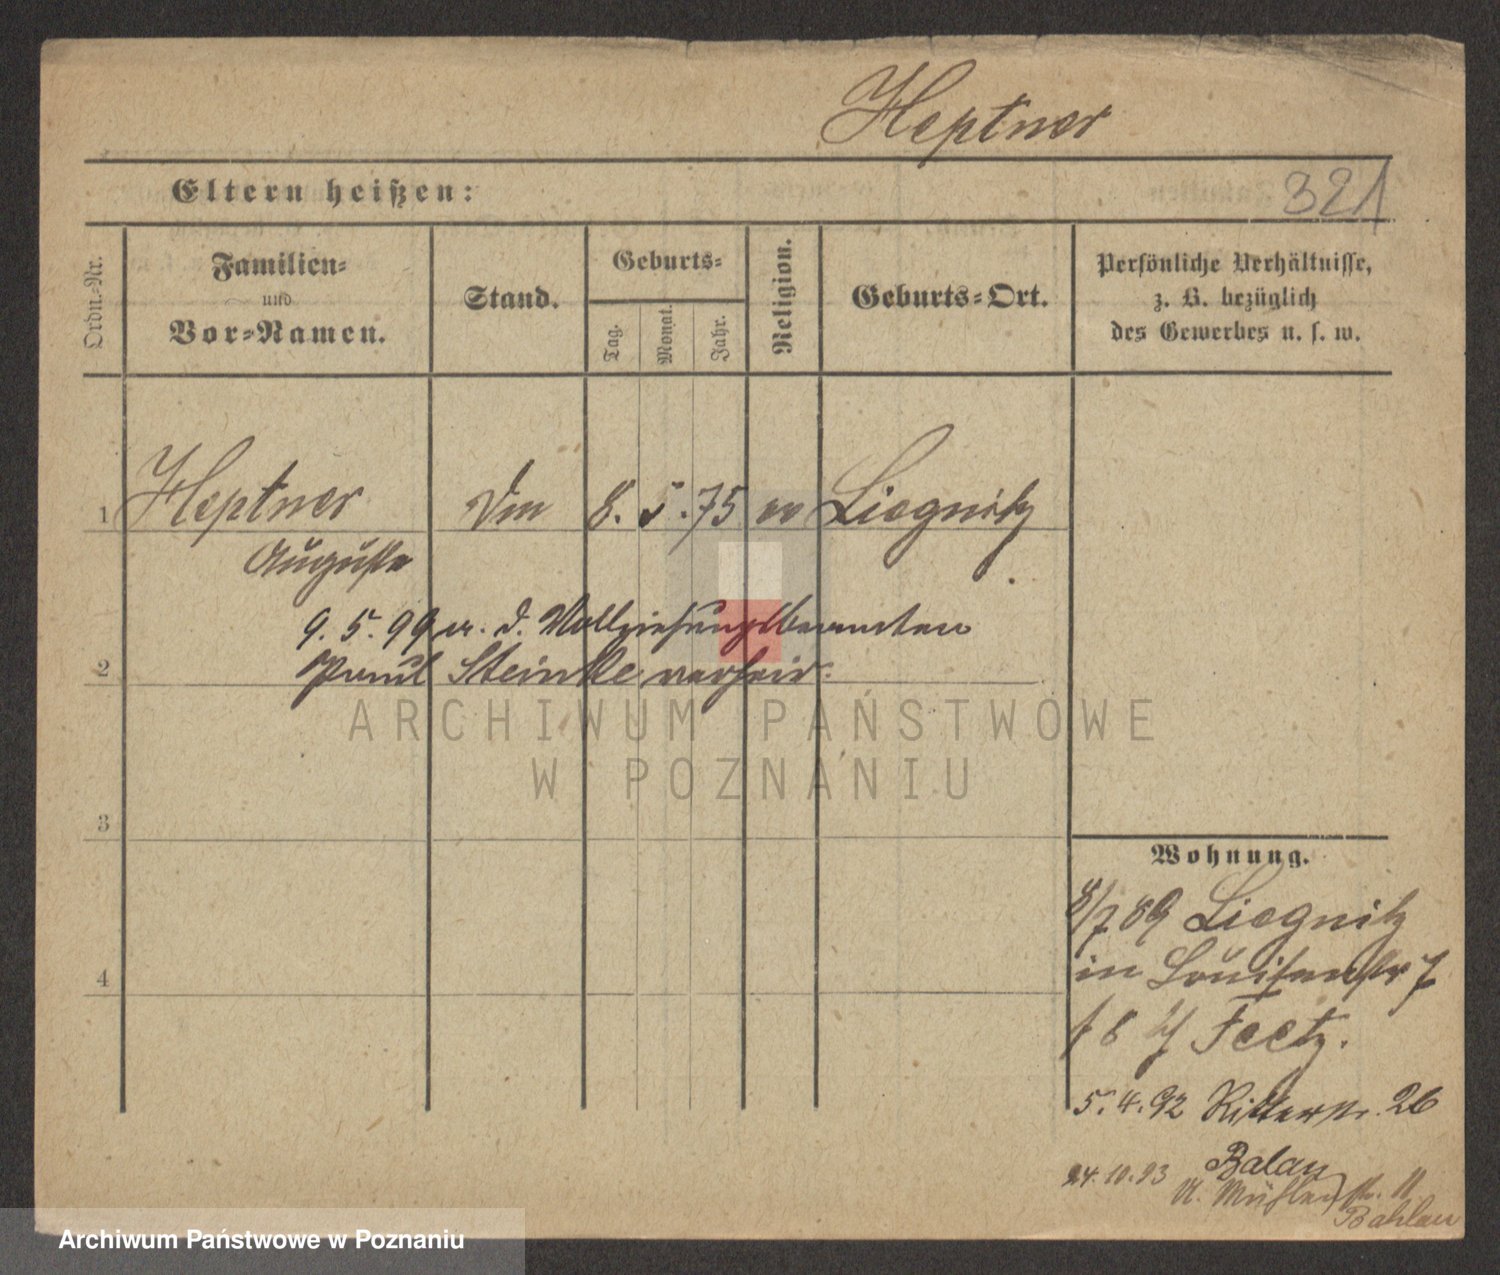 Heptner
Eltern heißen:
321
Ordn.-Nr.
Familien-
und
Vor-Namen.
Stand.
Geburts-
Tag.
Monat.
Jahr.
Religion.
Geburts-Ort.
Persönliche Verhältnisse,
z. B. bezüglich
des Gewerbes u. s. w.
1 Heptner 8. 5. 75 ev Liegnitz
Auguste
9. 5. 99 m. d. Vollziehungsbeamten
2 Paul Steinke verheir.
ARCHIWUM PAŃSTWOWE
W POZNANIU
3
Wohnung.
8/7 89 Liegnitz
4
in Louisenstr 7
5. 4. 92 Ritterstr. 26
Balau
24. 10. 93 U. Mühlenstr. 11
Bahlau
Archiwum Państwowe w Poznaniu